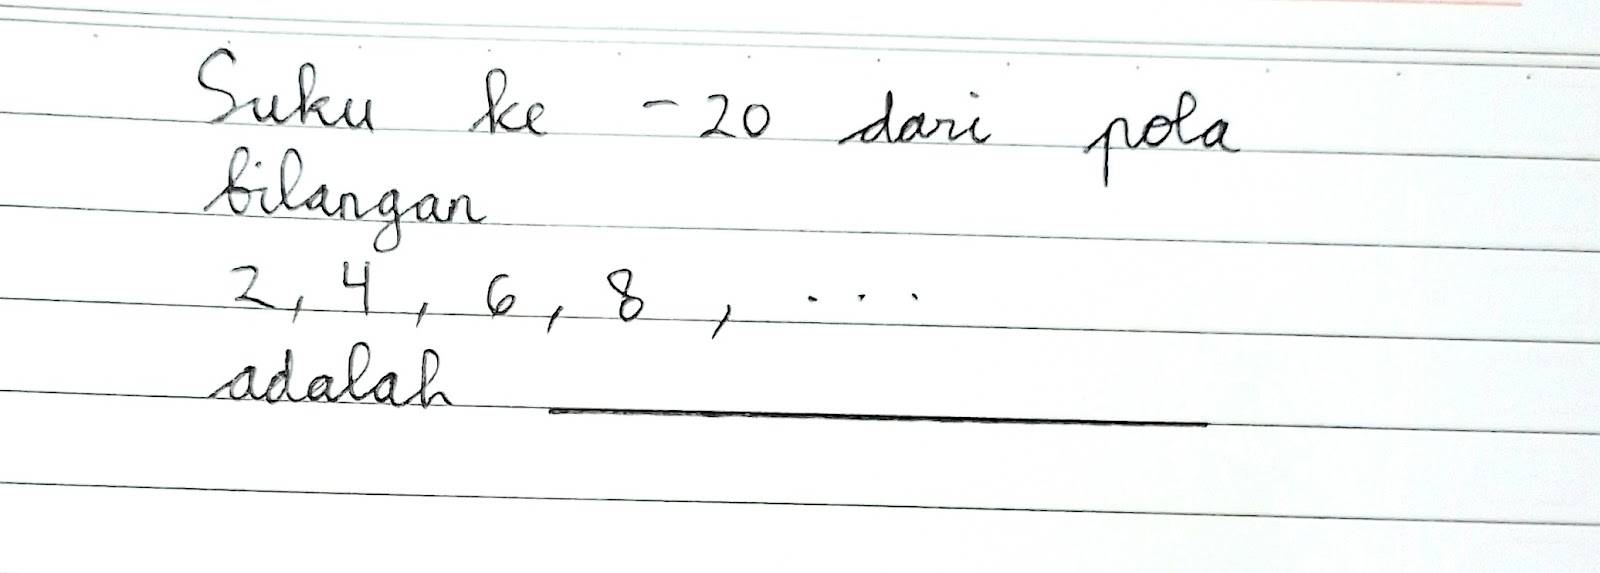 Suku ke -20 dari pola
bilangan
2, 4, 6, 8, ...
adalah